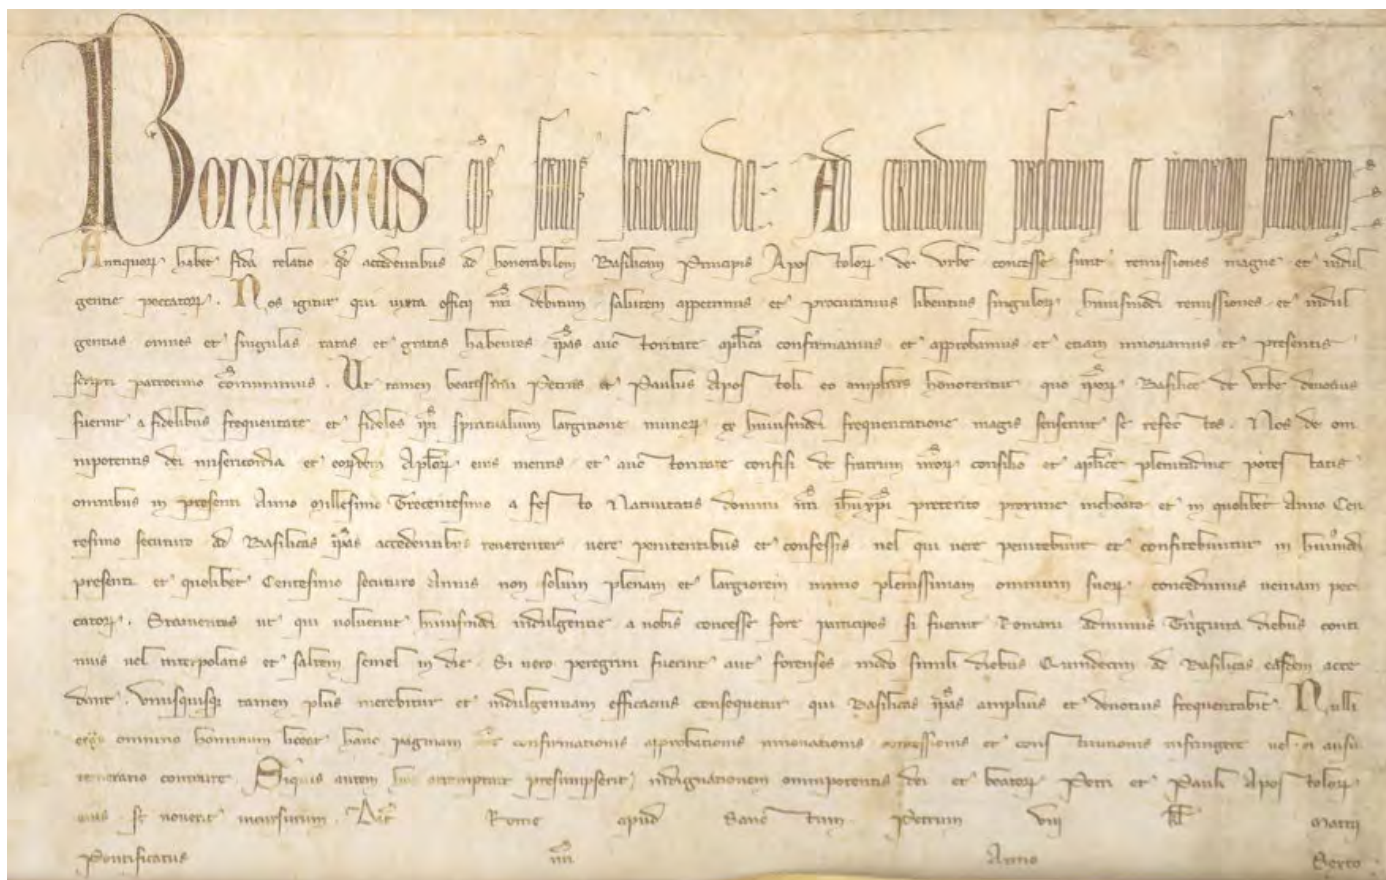 BONIFATIUS eps servus servorum dei Ad certitudinem presentium et memoriam futurorum
Antiquorꝝ habet fida relatio qd accedentibus ad honorabilem Basilicam Principis Apostolorꝝ de Urbe concesse sunt remissiones magne et indul
gentie peccatorꝝ. Nos igitur qui iuxta officij nri debitum salutem appetimus et procuramus libentius singulorꝝ huiusmodi remissiones et indul
gentias omnes et singulas ratas et gratas habentes ipas auctoritate aplica confirmamus et approbamus et etiam innovamus et presentis
scripti patrocinio comunimus. Ut tamen beatissimi Petrus et Paulus Apostoli eo amplius honorentur quo iporꝝ Basilice de Urbe devotius
fuerint a fidelibus frequentate et fideles ipi spiritualium largitione munerꝝ ex huiusmodi frequentatione magis senserint se refectos. Nos de om
nipotentis dei misericordia et eordem Aplorꝝ eius meritis et auctoritate confisi de fratrum nrorꝝ consilio et aplice plenitudine potestatis
omnibus in presenti Anno Millesimo Trecentesimo a festo Nativitatis domini nri ihu xpi preterito proxime inchoato et in quolibet Anno Cen
tesimo secuturo ad Basilicas ipas accedentibus reverenter vere penitentibus et confessis vel qui vere penitebunt et confitebuntur in huiusmodi
presenti et quolibet Centesimo secuturo Annis non solum plenam et largiorem immo plenissimam omnium suorꝝ concedimus veniam pec
catorꝝ. Statuentes ut qui voluerint huiusmodi indulgentie a nobis concesse fore participes si fuerint Romani adminus Triginta diebus conti
nuis vel interpolatis et saltem semel in die Si vero peregrini fuerint aut forenses modo simili diebus Quindecim ad Basilicas easdem acce
dant. Unusquisqꝫ tamen plus merebitur et indulgentiam efficacius consequetur qui Basilicas ipas amplius et devotius frequentabit. Nulli
ergo omnino hominum liceat hanc paginam nre confirmationis approbationis innovationis concessionis et constitutionis infringere vel ei ausu
temerario contraire. Siquis autem hoc attemptare presumpserit indignationem omnipotentis dei et beatorꝝ Petri et Pauli Apostolorꝝ
eius se noverit incursurum. Dat Rome apud Sanctum Petrum viij kl Martij
Pontificatus nri Anno Sexto